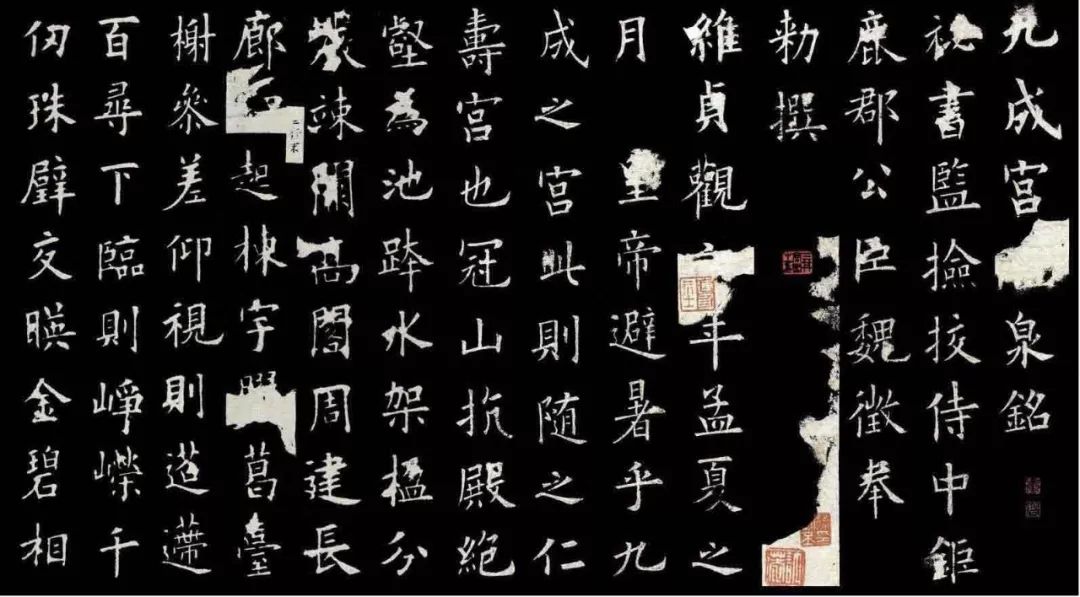 九成宮泉銘
祕書監撿挍侍中鉅
鹿郡公臣魏徵奉
勑撰
維貞觀六年孟夏之
月皇帝避暑乎九
成之宮此則随之仁
壽宮也冠山抗殿絕
壑為池跨水架楹分
巖竦闕高閣周建長
廊四起棟宇葛臺
榭參差仰視則迢遰
百尋下臨則崢嶸千
仞珠璧交暎金碧相